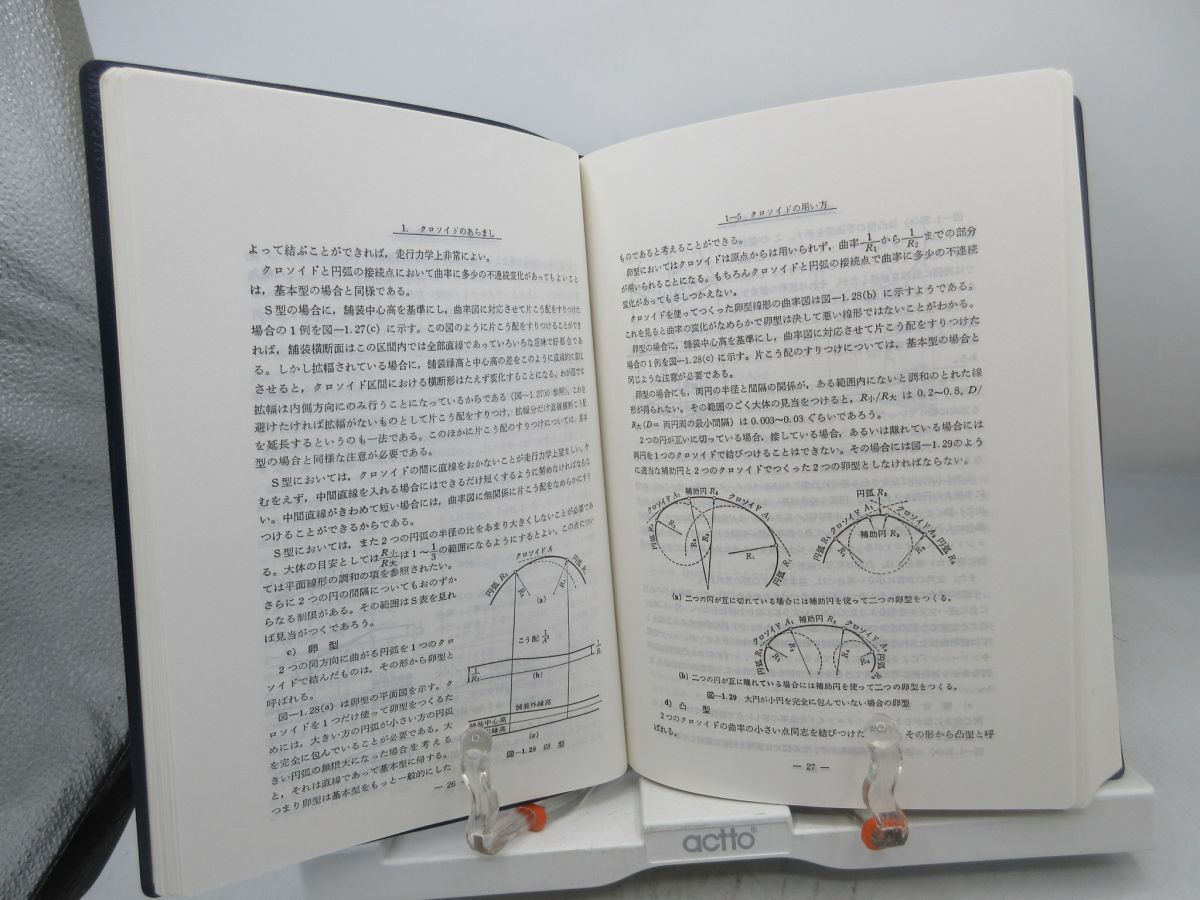 1. クロソイドのあらまし
よって結ぶことができれば，走行力学上非常によい。
クロソイドと円弧の接続点において曲率に多少の不連続変化があってもよいこと
は，基本型の場合と同様である。
S型の場合に，舗装中心高を基準にし，曲率図に対応させて片こう配をすりつけた
場合の1例を図—1.27(c)に示す。この図のように片こう配をすりつけることができ
れば，舗装横断面はこの区間内では全部直線であっていろいろな意味で好都合であ
る。しかし拡幅されている場合に，舗装縁高と中心高の差をこのように直線的に変化
させると，クロソイド区間における横断形はたえず変化することになる。わが国では
拡幅は内側方向にのみ行うことになっているからである（図—1.27(d)参照）。これを
避けたければ拡幅がないものとして片こう配をすりつけ，拡幅分だけ直線横断こう配
を延長するというのも一法である。このほかに片こう配のすりつけについては，基本
型の場合と同様な注意が必要である。
S型においては，クロソイドの間に直線をおかないことが走行力学上望ましい。や
むをえず，中間直線を入れる場合にはできるだけ短くするように努めなければならな
い。中間直線がきわめて短い場合には，曲率図に無関係に片こう配をなめらかにすり
つけることができるからである。
S型においては，また2つの円弧の半径の比をあまり大きくしないことが必要であ
る。大体の目安としてはR小/R大は1〜1/3の範囲になるようにするとよい。この点につい
ては平面線形の調和の項を参照されたい。
さらに2つの円の間隔についてもおのずか
らなる制限がある。その範囲はS表を見れ
ば見当がつくであろう。
c) 卵 型
2つの同方向に曲がる円弧を1つのクロ
ソイドで結んだものは，その形から卵型と
呼ばれる。
図—1.28(a)は卵型の平面図を示す。ク
ロソイドを1つだけ使って卵型をつくるた
めには，大きい方の円弧が小さい方の円弧
を完全に包んでいることが必要である。大
きい円弧の無限大になった場合を考える
と，それは直線であって基本型に帰する。
つまり卵型は基本型をもっと一般的にした
クロソイドA
円弧 R₂
円弧 R₁
R₂
R₁
(a)
こう配
(b)
舗装外縁高
舗装中心高
縁高
(c)
図—1.28 卵 型
— 26 —
1—5 クロソイドの用い方
ものであると考えることができる。
卵型においてはクロソイドは原点からは用いられず，曲率1/R₁から1/R₂までの部分
が用いられることになる。もちろんクロソイドと円弧の接続点で曲率に多少の不連続
変化があってもさしつかえない。
クロソイドを使ってつくった卵型線形の曲率図は図—1.28(b)に示すようである。
これを見ると曲率の変化がなめらかで卵型は決して悪い線形ではないことがわかる。
卵型の場合に，舗装中心高を基準にし，曲率図に対応させて片こう配をすりつけた
場合の1例を図—1.28(c)に示す。片こう配のすりつけについては，基本型の場合と
同じような注意が必要である。
卵型の場合にも，両円の半径と間隔の関係が，ある範囲内にないと調和のとれた線
形が得られない。その範囲のごく大体の見当をつけると，R小/R大 は 0.2〜0.8，D/
R大(D＝両円周の最小間隔) は 0.003〜0.03 ぐらいであろう。
2つの円が互いに切っている場合，接している場合，あるいは離れている場合には
両円を1つのクロソイドで結びつけることはできない。その場合には図—1.29のよう
に適当な補助円と2つのクロソイドでつくった2つの卵型としなければならない。
クロソイド A₁ 補助円 R₃ クロソイド A₂
円弧 R₁
R₁
円弧 R₃
クロソイド A₁
補助円 R₃
(a) 二つの円が互に切れている場合には補助円を使って二つの卵型をつくる。
クロソイド A₁ 補助円 R₃ クロソイド A₂
円弧 R₁
円弧 R₂
(b) 二つの円が互に離れている場合には補助円を使って二つの卵型をつくる。
図—1.29 大円が小円を完全に包んでいない場合の卵型
d) 凸 型
2つのクロソイドの曲率の小さい点同志を結びつけた
その形から凸型と呼
ばれる。
— 27 —
actto